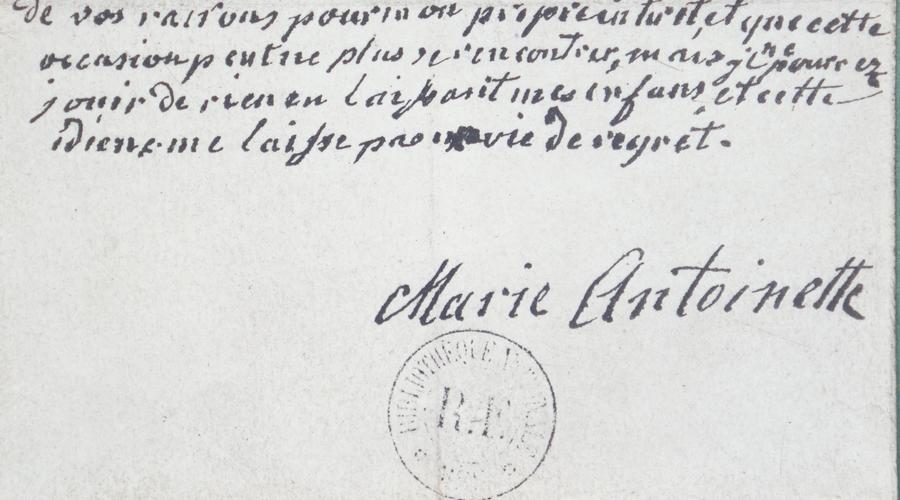 de vos raisons pour mon propre intérêt et que cette
occasion peut ne plus se rencontrer, mais je ne pourrez
jouir de rien en laissant mes enfans, et cette
idiene me laisse pas vie de regrét.
Marie Antoinette
BIBLIOTHEQUE
R.F.